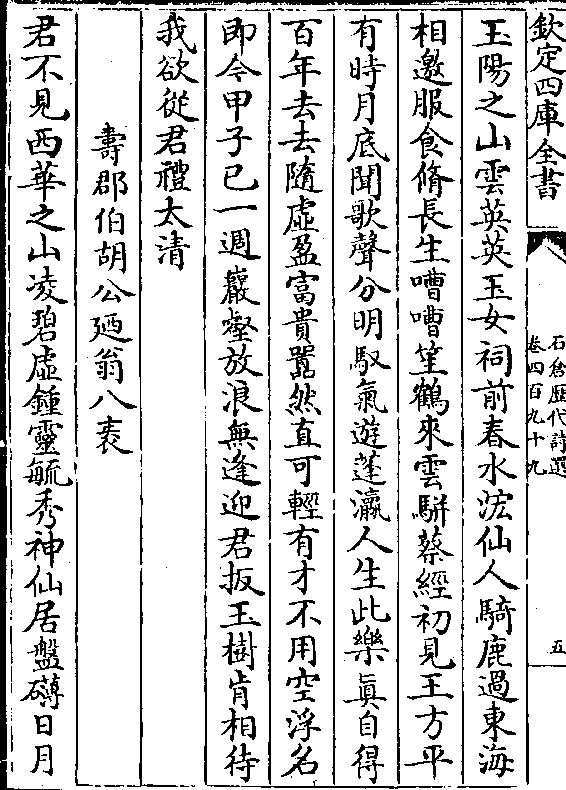 欽定四庫全書
石倉歷代詩選
卷四百九十九
五
玉陽之山雲英英玉女祠前春水泓仙人騎鹿過東海
相邀服食脩長生嘈嘈笙鶴來雲駢蔡經初見王方平
有時月底聞歌聲分明馭氣遊蓬瀛人生此樂真自得
百年去去隨虛盈富貴囂然直可輕有才不用空浮名
即今甲子已一週巖壑放浪無逢迎君扳玉樹肯相待
我欲從君禮太清
壽郡伯胡公廼翁八袠
君不見西華之山凌碧虛鍾靈毓秀神仙居盤礴日月